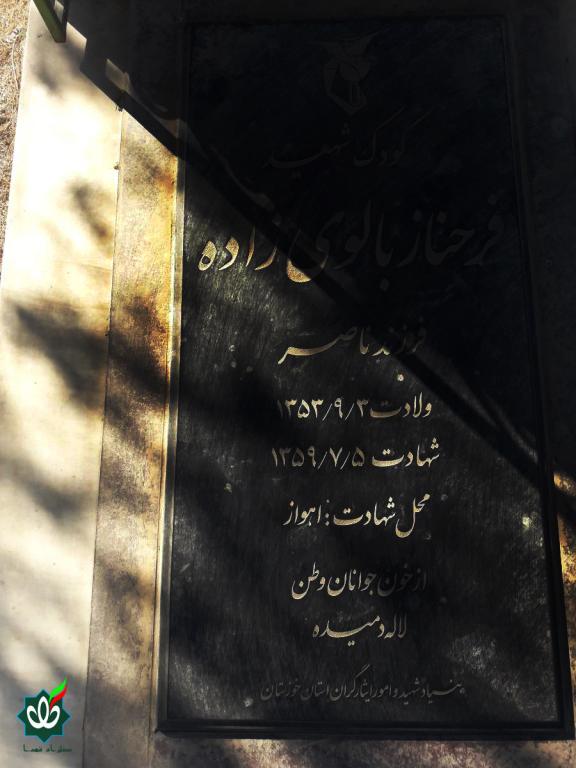 کودک شهید
فرحناز بالوی زاده
فرزند ناصر
ولادت ۱۳۵۳/۹/۳
شهادت ۱۳۵۹/۷/۵
محل شهادت: اهواز
از خون جوانان وطن
لاله دمیده
بنیاد شهید و امور ایثارگران استان خوزستان